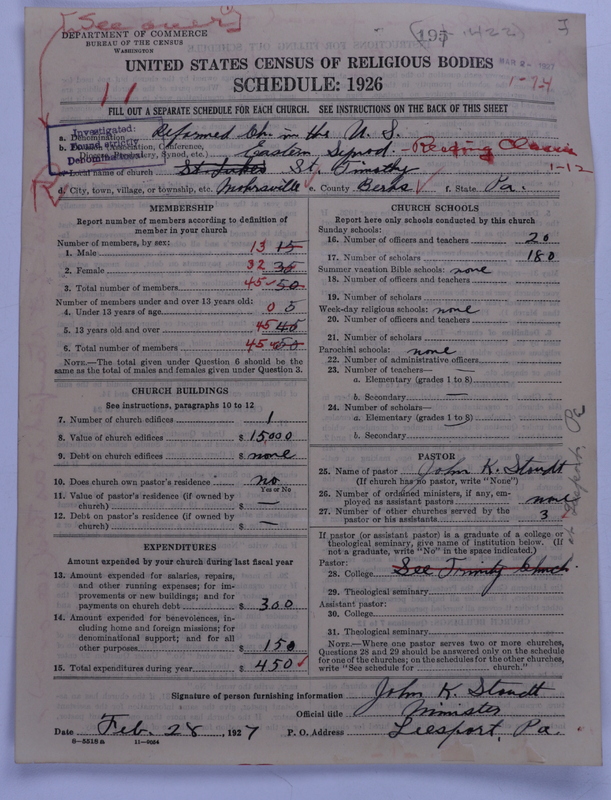 [See over]
DEPARTMENT OF COMMERCE
BUREAU OF THE CENSUS
WASHINGTON
(195-422)
MAR 2 - 1927
1-74
UNITED STATES CENSUS OF RELIGIOUS BODIES
SCHEDULE: 1926
11
FILL OUT A SEPARATE SCHEDULE FOR EACH CHURCH. SEE INSTRUCTIONS ON THE BACK OF THIS SHEET
Investigated:
Found strictly
Denominational
a. Denomination Reformed Ch. in the U. S.
b. Association, Conference,
Presbytery, Synod, etc. Eastern Synod. - Reading Classis
1-12
c. Local name of church St. Lukes St. Timothy
d. City, town, village, or township, etc. Mohrsville e. County Berks f. State Pa.
MEMBERSHIP
Report number of members according to definition of member in your church
Number of members, by sex:
1. Male 13 15
2. Female 32 35
3. Total number of members 45 50
Number of members under and over 13 years old:
4. Under 13 years of age 0 5
5. 13 years old and over 45 45
6. Total number of members 45 50
NOTE.—The total given under Question 6 should be the same as the total of males and females given under Question 3.
CHURCH BUILDINGS
See instructions, paragraphs 10 to 12
7. Number of church edifices 1
8. Value of church edifices $ 15,000
9. Debt on church edifices $ none
10. Does church own pastor's residence? no
Yes or No
11. Value of pastor's residence (if owned by church) $ —
12. Debt on pastor's residence (if owned by church) $ —
EXPENDITURES
Amount expended by your church during last fiscal year
13. Amount expended for salaries, repairs, and other running expenses; for improvements or new buildings; and for payments on church debt $ 300
14. Amount expended for benevolences, including home and foreign missions; for denominational support; and for all other purposes $ 150
15. Total expenditures during year $ 450
CHURCH SCHOOLS
Report here only schools conducted by this church
Sunday schools:
16. Number of officers and teachers 20
17. Number of scholars 180
Summer vacation Bible schools: none
18. Number of officers and teachers
19. Number of scholars
Week-day religious schools: none
20. Number of officers and teachers
21. Number of scholars
Parochial schools: none
22. Number of administrative officers
23. Number of teachers—
a. Elementary (grades 1 to 8) —
b. Secondary —
24. Number of scholars—
a. Elementary (grades 1 to 8) —
b. Secondary
PASTOR
25. Name of pastor John K. Stoudt
(If church has no pastor, write "None")
26. Number of ordained ministers, if any, employed as assistant pastors none
27. Number of other churches served by the pastor or his assistants 3
If pastor (or assistant pastor) is a graduate of a college or theological seminary, give name of institution below. (If not a graduate, write "No" in the space indicated.)
Pastor:
28. College See Trinity Church.
29. Theological seminary
Assistant pastor:
30. College
31. Theological seminary
NOTE.—Where one pastor serves two or more churches, Questions 28 and 29 should be answered only on the schedule for one of the churches; on the schedules for the other churches, write "See schedule for church."
Leesport, Pa
Signature of person furnishing information John K. Stoudt
Official title Minister
Date Feb. 28, 1927 P. O. Address Leesport, Pa.
8—5518a 11—9054